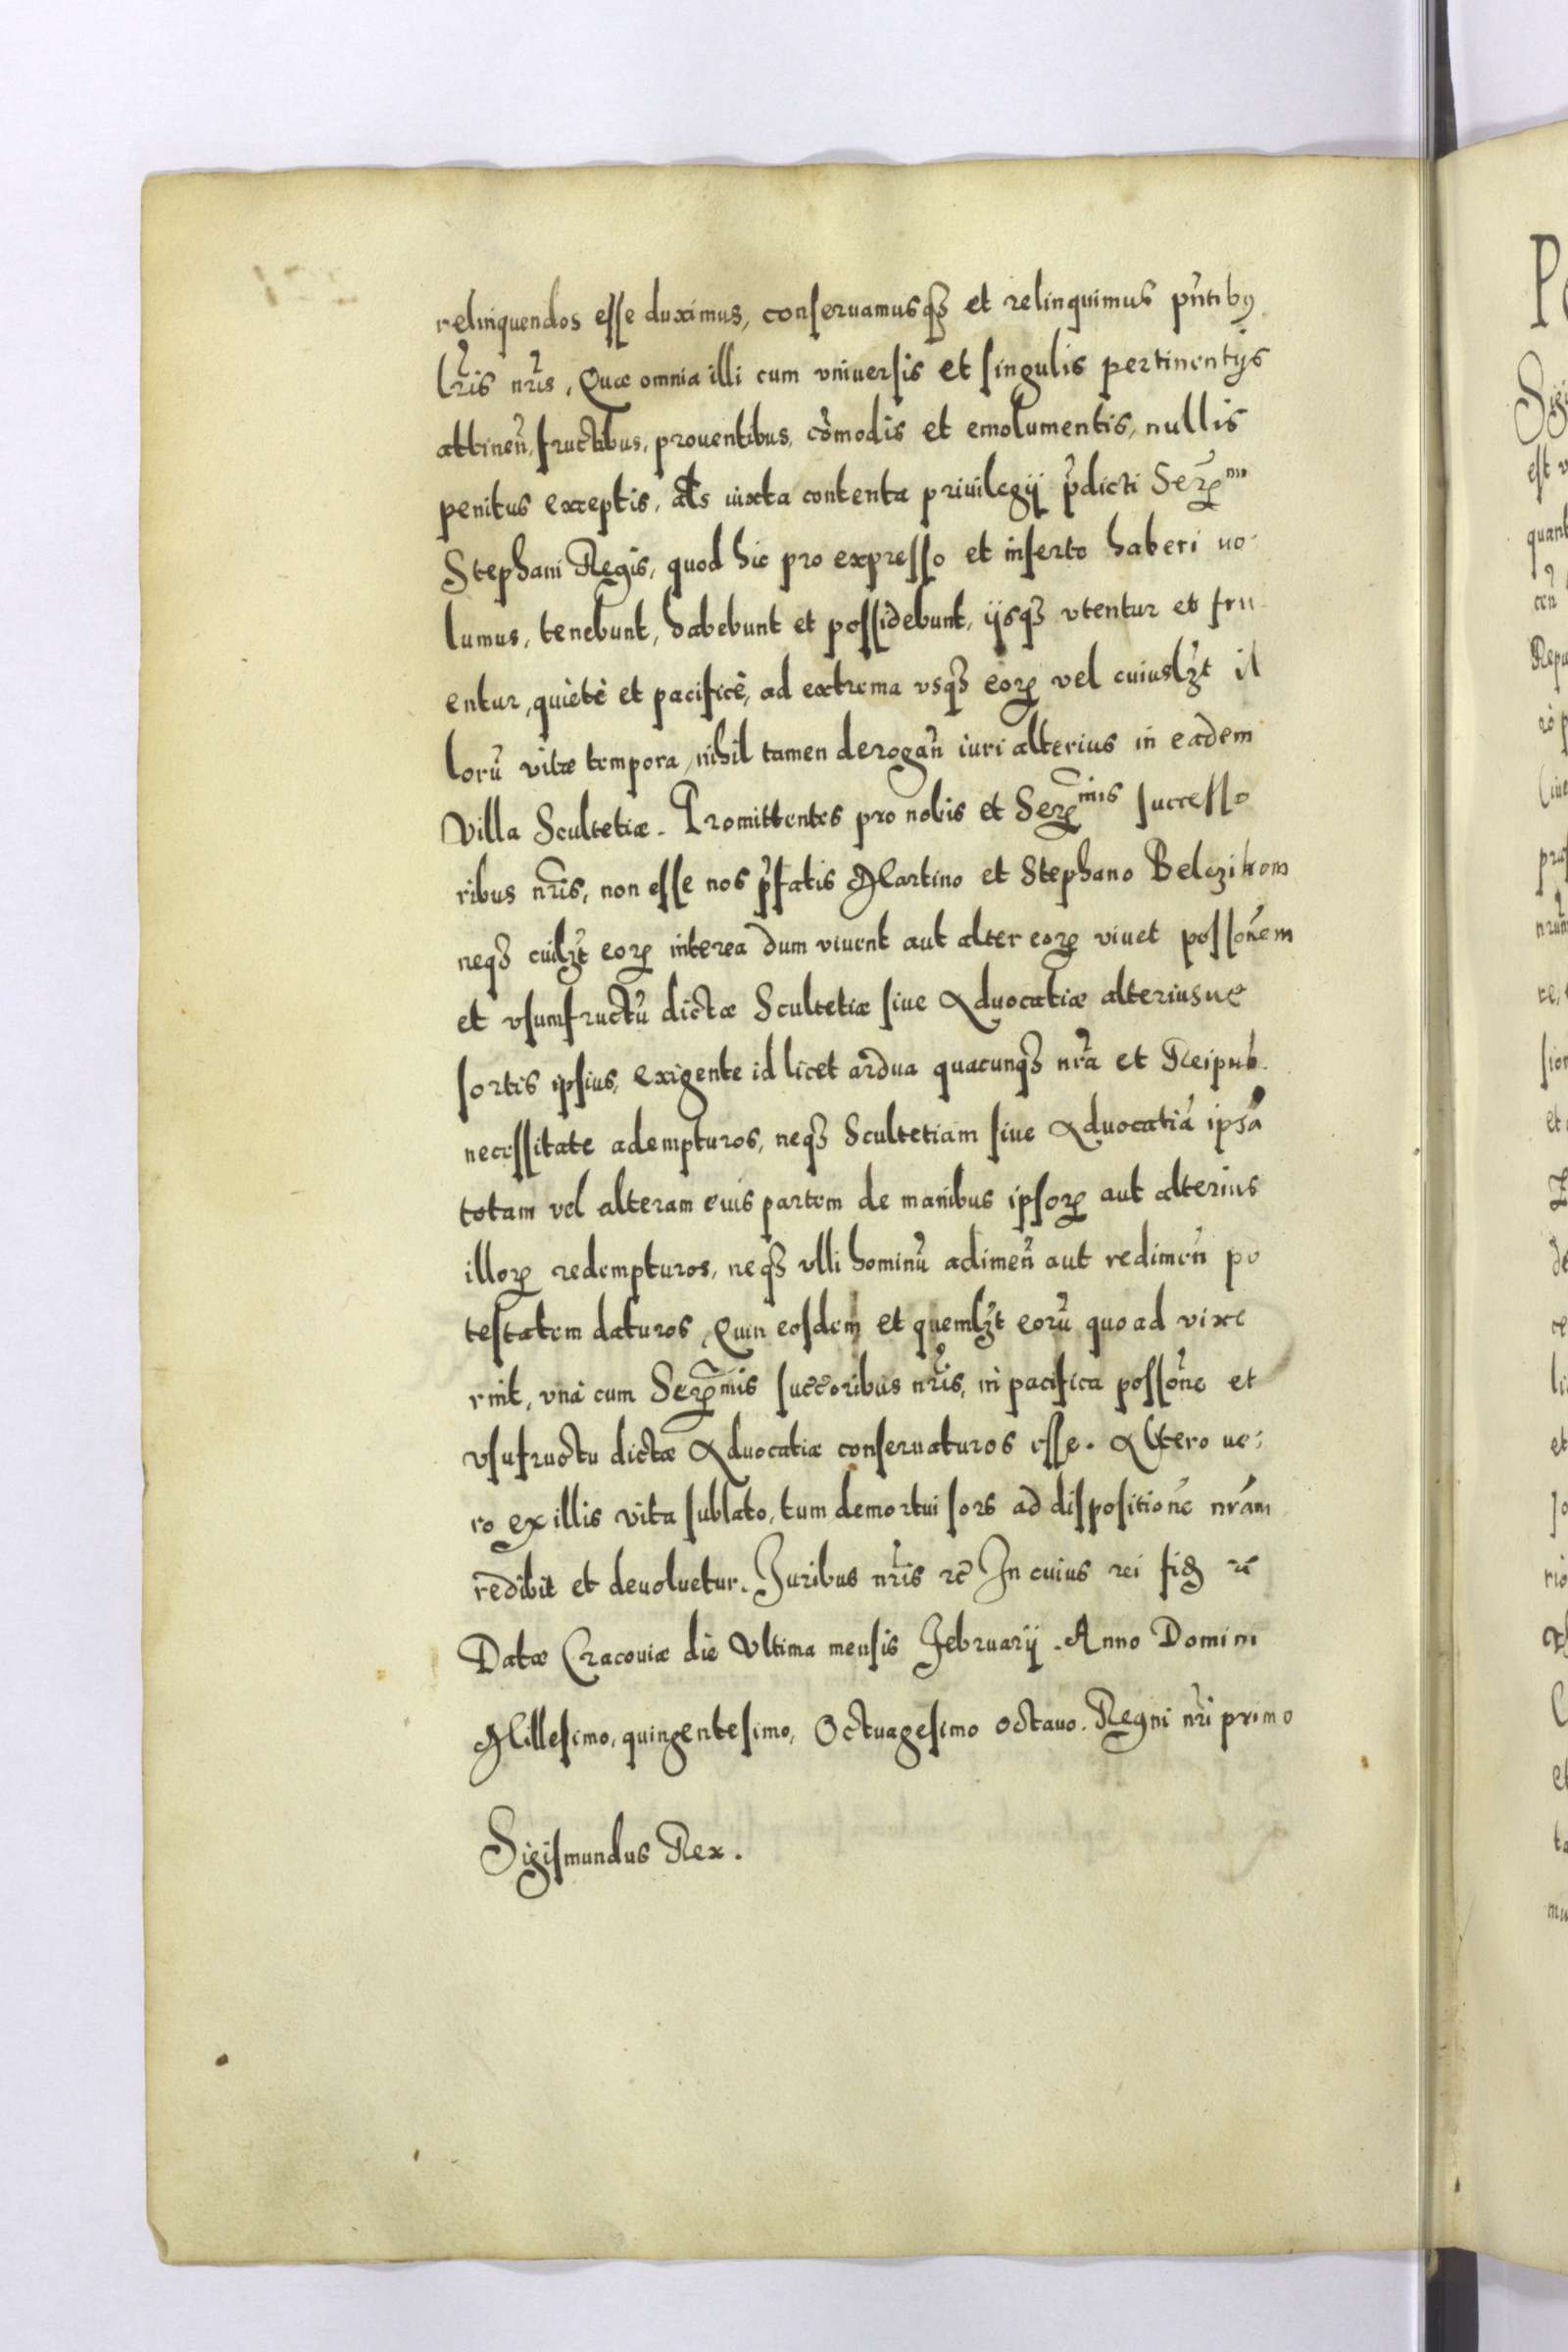 relinquendos esse duximus, conseruamusq₃ et relinquimus pñtibꝰ
lr̃is nr̃is, Quæ omnia illi cum vniuersis et singulis pertinentijs
attineñ, fructibus, prouentibus, cõmodis et emolumentis, nullis
penitus exceptis, als iuxta contenta priuilegij p̃dicti Serꝫmi
Stephani Regis, quod hic pro expresso et inserto haberi uo
lumus, tenebunt, habebunt et possidebunt, ijsq₃ vtentur et fru
entur, quiètè et pacificè, ad extrema vsq₃ eoꝝ vel cuiuslꝫt il
lorũ vitæ tempora, nihil tamen derogañ iuri alterius in eadem
Villa Scultetiæ. Promittentes pro nobis et Serꝫmis successo
ribus nr̃is, non esse nos p̃fatis Martino et Stephano Belczikom
neq₃ cuilꝫt eoꝝ interea dum viuent aut alter eoꝝ viuet possõnem
et vsumfructũ dictæ Scultetiæ siue Aduocatiæ alteriusue
sortis ipsius, exigente id licet ardua quacunq₃ nr̃a et Reipub.
necessitate adempturos, neq₃ Scultetiam siue Aduocatiã ipsã
totam vel alteram euis partem de manibus ipsoꝝ aut alterius
illoꝝ redempturos, neq₃ vlli hominũ adimeñ aut redimeñ po
testatem daturos, Quin eosdem et quemlꝫt eorũ quoad vixe
rint, vnà cum Serꝫmis succ̃oribus nr̃is, in pacifica possõne et
vsufructu dictæ Aduocatiæ conseruaturos esse. Altero ue:
ro ex illis vita sublato, tum demortui sors ad dispositionẽ nr̃am
redibit et deuoluetur. Juribus nr̃is ꝛc̃ In cuius rei fiꝺ ꝛc̃
Datæ Cracouiæ die Vltima mensis Februarij. Anno Domini
Millesimo, quingentesimo, Octuagesimo octauo. Regni nr̃i primo
Sigismundus Rex.